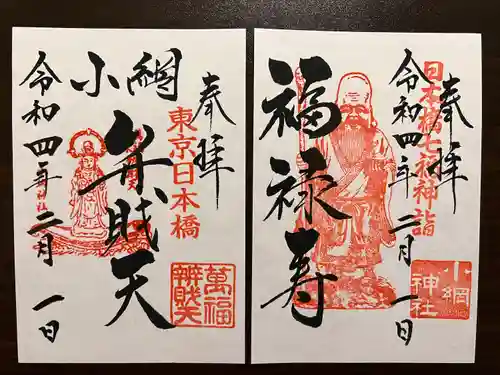 奉拝
日本橋七福神詣
令和四年二月一日
福禄寿
小網
神社
奉拝
東京日本橋
小網
弁財天
令和四年二月一日
萬福
辨財天